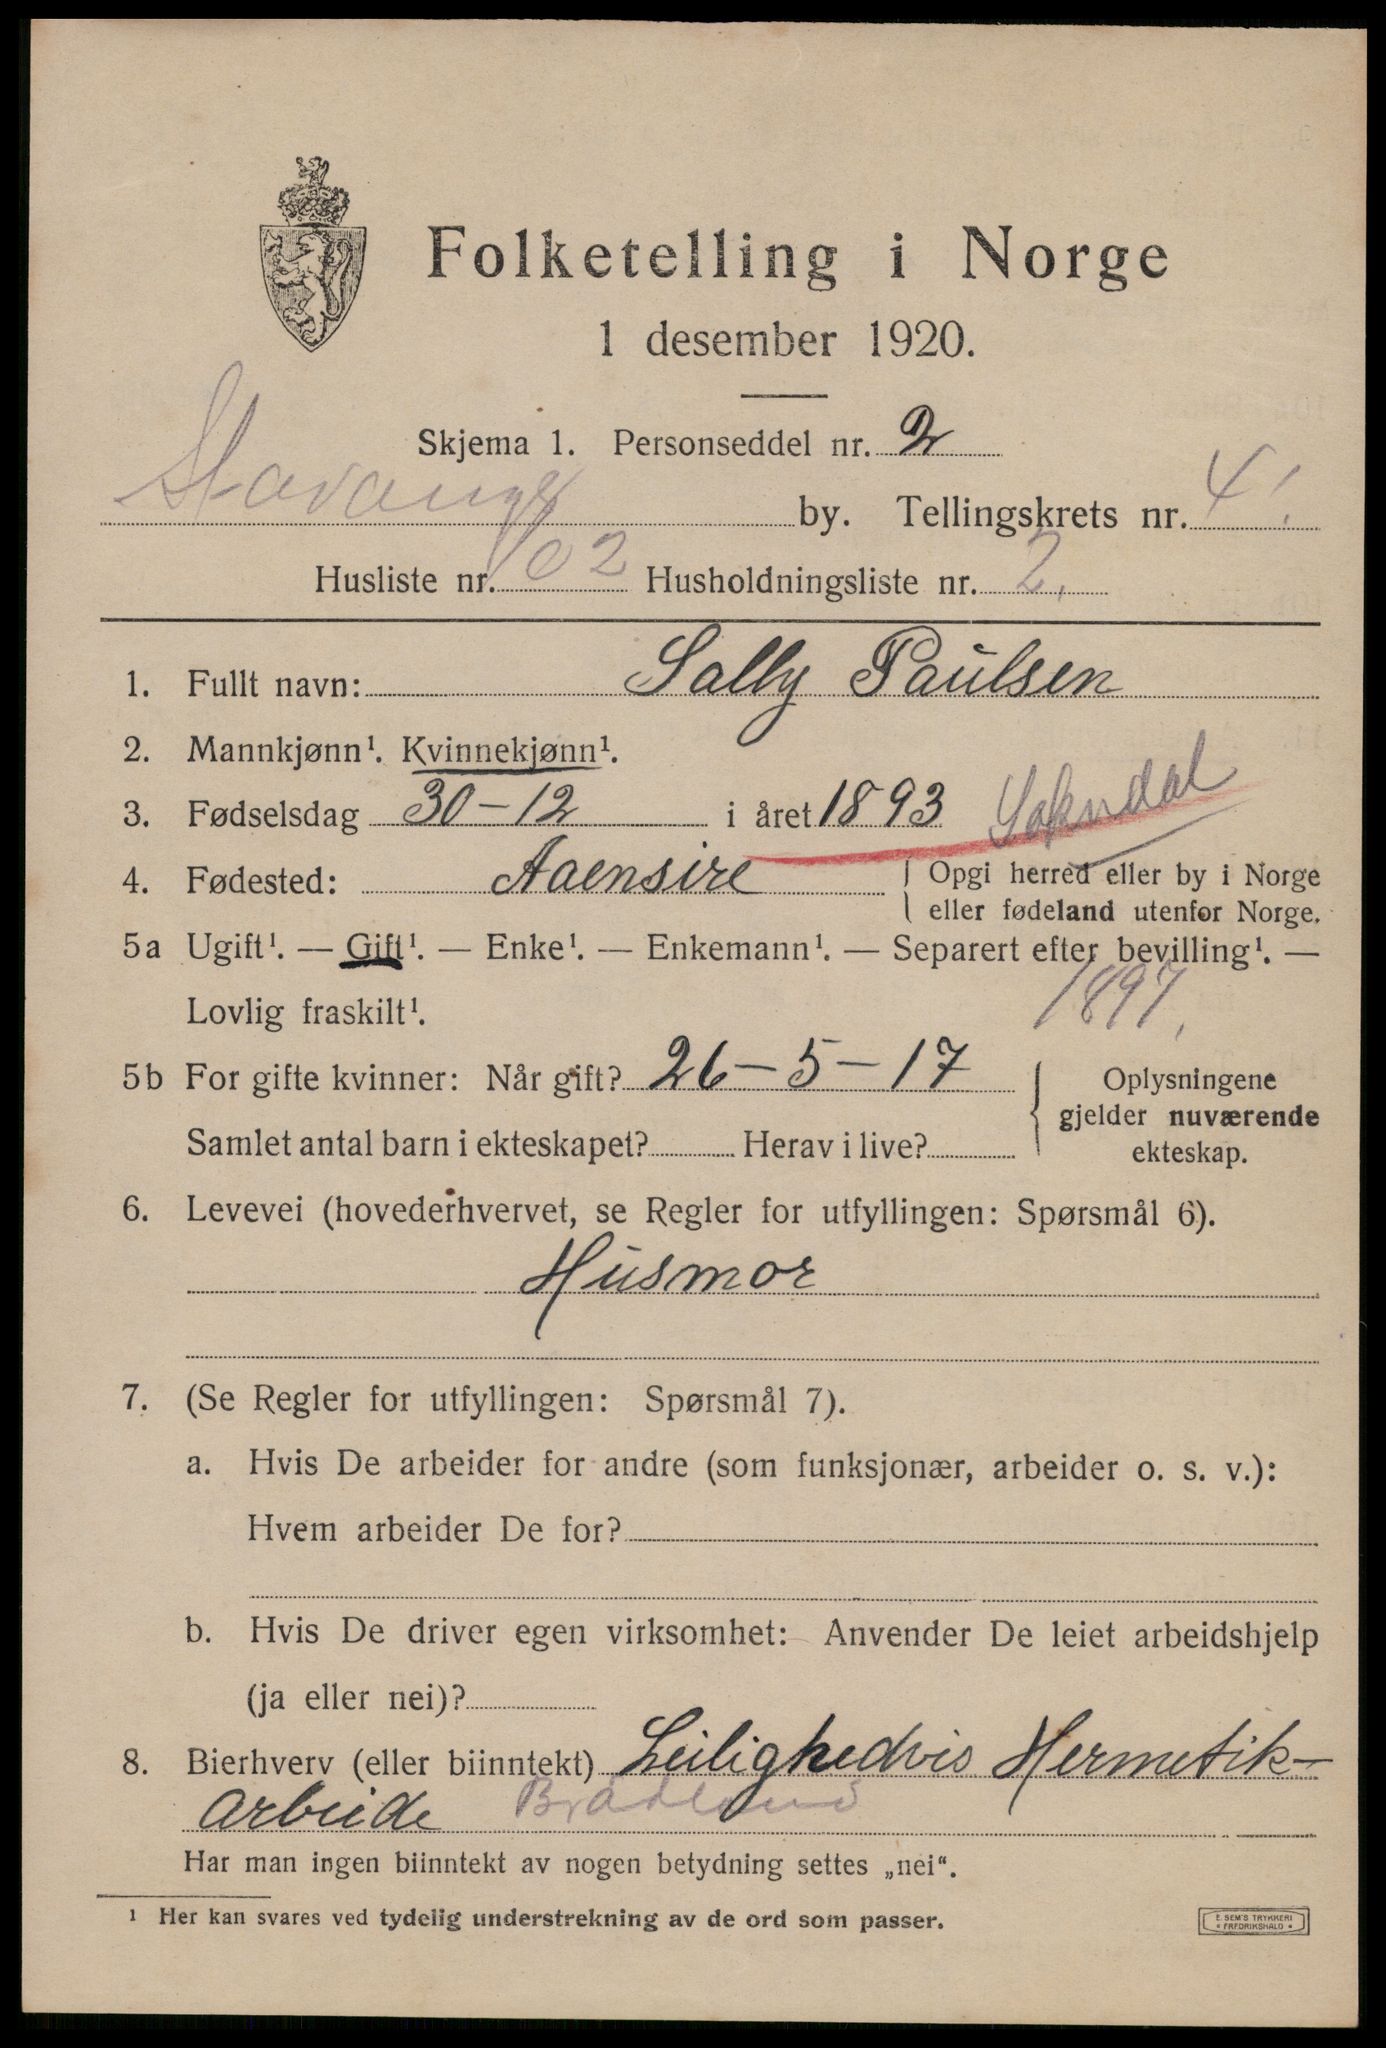 Folketelling i Norge
1 desember 1920.
Skjema 1. Personseddel nr. 2
Stavanger by. Tellingskrets nr. 4.
Husliste nr. 102 Husholdningsliste nr. 2.
1. Fullt navn: Sally Paulsen
2. Mannkjønn¹. Kvinnekjønn¹.
3. Fødselsdag 30-12 i året 1893 Sokndal
4. Fødested: Aaensire { Opgi herred eller by i Norge
{ eller fødeland utenfor Norge.
5a Ugift¹. — Gift¹. — Enke¹. — Enkemann¹. — Separert efter bevilling¹. —
Lovlig fraskilt¹. 1897.
5b For gifte kvinner: Når gift? 26-5-17 { Oplysningene
gjelder nuværende
Samlet antal barn i ekteskapet? Herav i live? ekteskap.
6. Levevei (hovederhvervet, se Regler for utfyllingen: Spørsmål 6).
Husmor
7. (Se Regler for utfyllingen: Spørsmål 7).
a. Hvis De arbeider for andre (som funksjonær, arbeider o. s. v.):
Hvem arbeider De for?
b. Hvis De driver egen virksomhet: Anvender De leiet arbeidshjelp
(ja eller nei)?
8. Bierhverv (eller biinntekt) Leilighedvis Hermetik-
arbeide
Har man ingen biinntekt av nogen betydning settes „nei“.
¹ Her kan svares ved tydelig understrekning av de ord som passer.
E. SEM'S TRYKKERI
* FREDRIKSHALD *